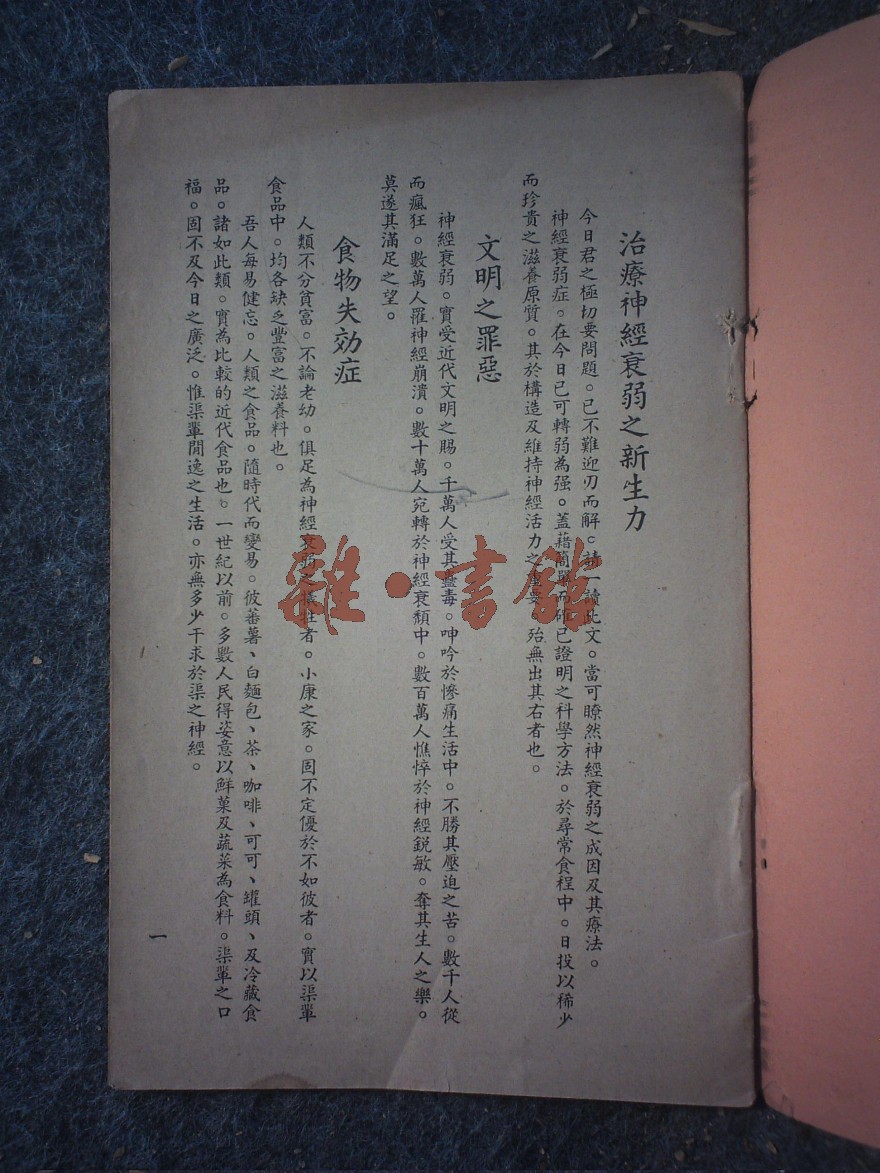 治療神經衰弱之新生力
今日君之極切要問題。已不難迎刃而解。請一讀此文。當可瞭然神經衰弱之成因及其療法。
神經衰弱症。在今日已可轉弱為强。蓋藉簡單而確已證明之科學方法。於尋常食程中。日拔以稀少
而珍貴之滋養原質。其於構造及維持神經活力之重要。殆無出其右者也。
文明之罪惡
神經衰弱。實受近代文明之賜。千萬人受其蠱毒。呻吟於慘痛生活中。不勝其壓迫之苦。數千人從
而瘋狂。數萬人罹神經崩潰。數十萬人宛轉於神經衰頹中。數百萬人憔悴於神經銳敏。奪其生人之樂。
莫遂其滿足之望。
食物失効症
人類不分貧富。不論老幼。俱足為神經衰弱之犧牲者。小康之家。固不定優於不如彼者。實以渠輩
食品中。均各缺乏豐富之滋養料也。
吾人每易健忘。人類之食品。隨時代而變易。彼蕃薯、白麵包、茶、咖啡、可可、罐頭、及冷藏食
品。諸如此類。實為比較的近代食品也。一世紀以前。多數人民得姿意以鮮菓及蔬菜為食料。渠輩之口
福。固不及今日之廣泛。惟渠輩閒逸之生活。亦無多少干求於渠之神經。
一
雜·書館